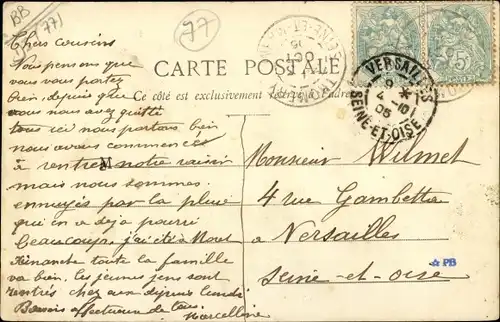 BB
77)
77
Chers cousins
Nous pensons que
vous vous portez
bien, depuis que
vous nous avez quitté
tous ici nous portons bien
nous avons commencés
à rentrer notre raisin
mais nous sommes
ennuyés par la pluie
qui en a déjà pourri
beaucoup. j'ai été à Moret
dimanche toute la famille
va bien. les jeunes gens sont
rentrés chez eux depuis lundi
Baisers affectueux de tous.
Marcelline
CARTE POSTALE
Ce côté est exclusivement réservé à l'adresse
VERSAILLES
4 -10
05
SEINE-ET-OISE
5
Monsieur Wilmet
4 rue Gambetta
à Versailles
Seine-et-oise
☆ PB